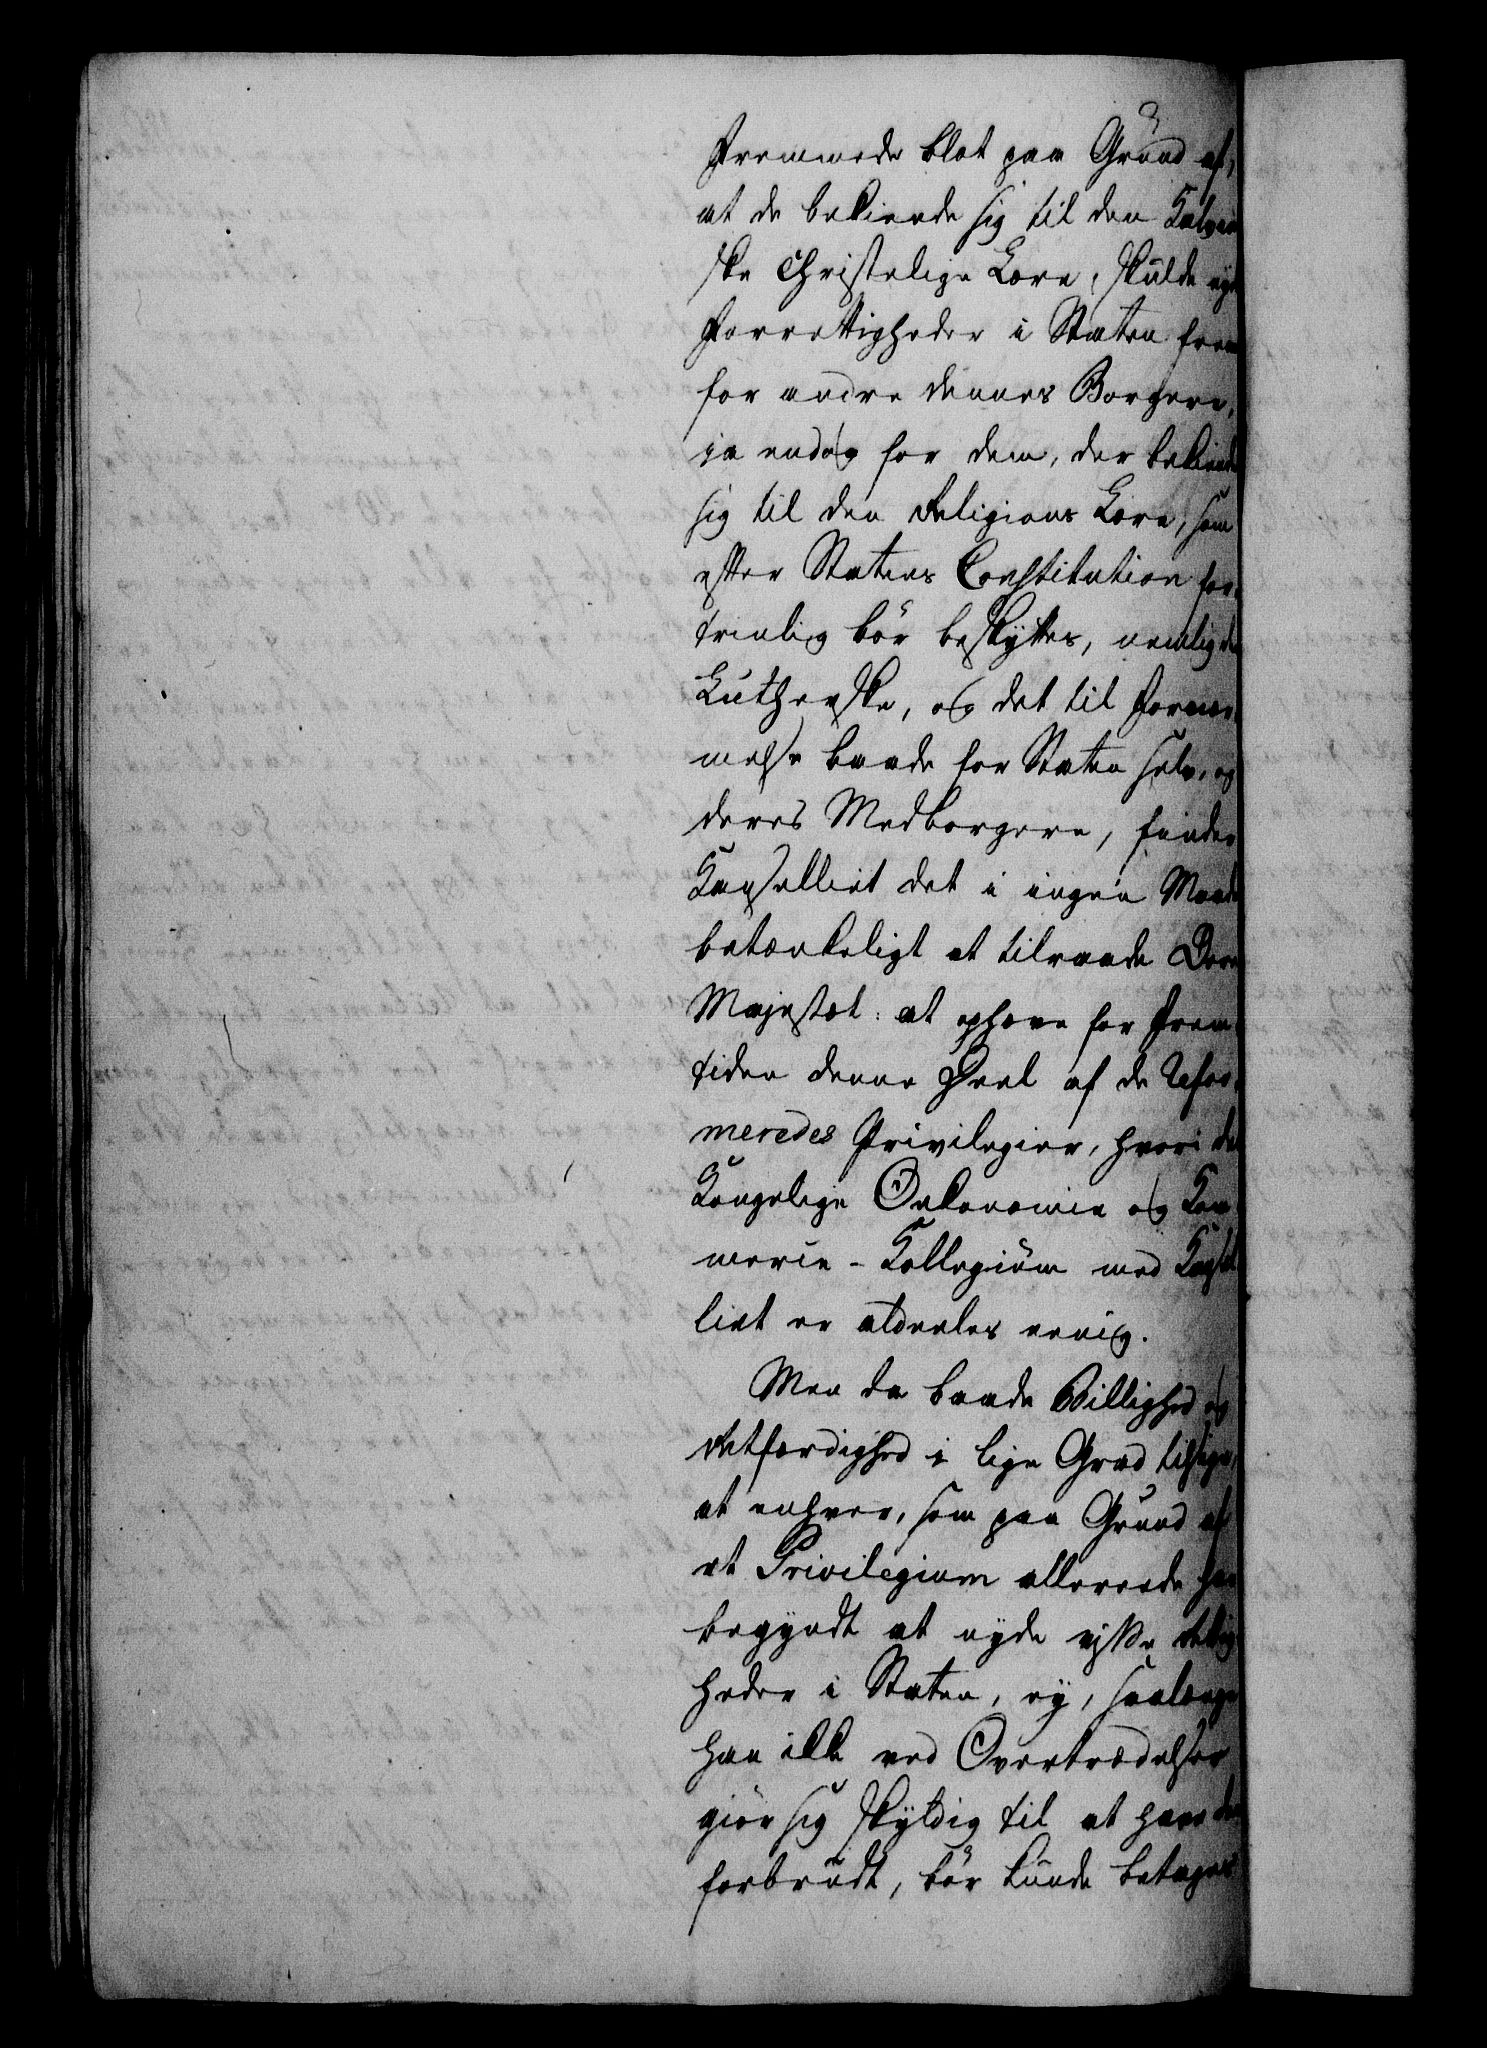 Fremmede blot paa Grund af,
at de bekiende sig til den Kalvin
ske Christelige Lære, skulde nyde
Forrettigheder i Staten frem
for andre dennes Borgere,
ja endog for dem, der bekiende
sig til den Religions Lære, som
efter Statens Constitution for-
trinlig bör beskyttes, nemlig den
Lutherske, og det til Fornær-
melse baade for Staten selv, og
deres Medborgere, finder
Kanselliet det i ingen Maade
betænkeligt at tilraade Deres
Majestæt: at ophæve for Frem-
tiden denne Deel af de Refor-
meredes Privilegier, hvori det
Kongelige Oekonomie og Kom-
merce-Kollegium med Kansel
liet er aldeeles eenig.
Men da baade Billighed og
Retfærdighed i lige Grad tilsige,
at enhver, som paa Grund af
et Privilegium allereede har
begyndt at nyde visse Rettig
heder i Staten, ey, saalænge
han ikke ved Overtrædelser
giör sig skyldig til at have dem
forbrudt, bör kunde betages